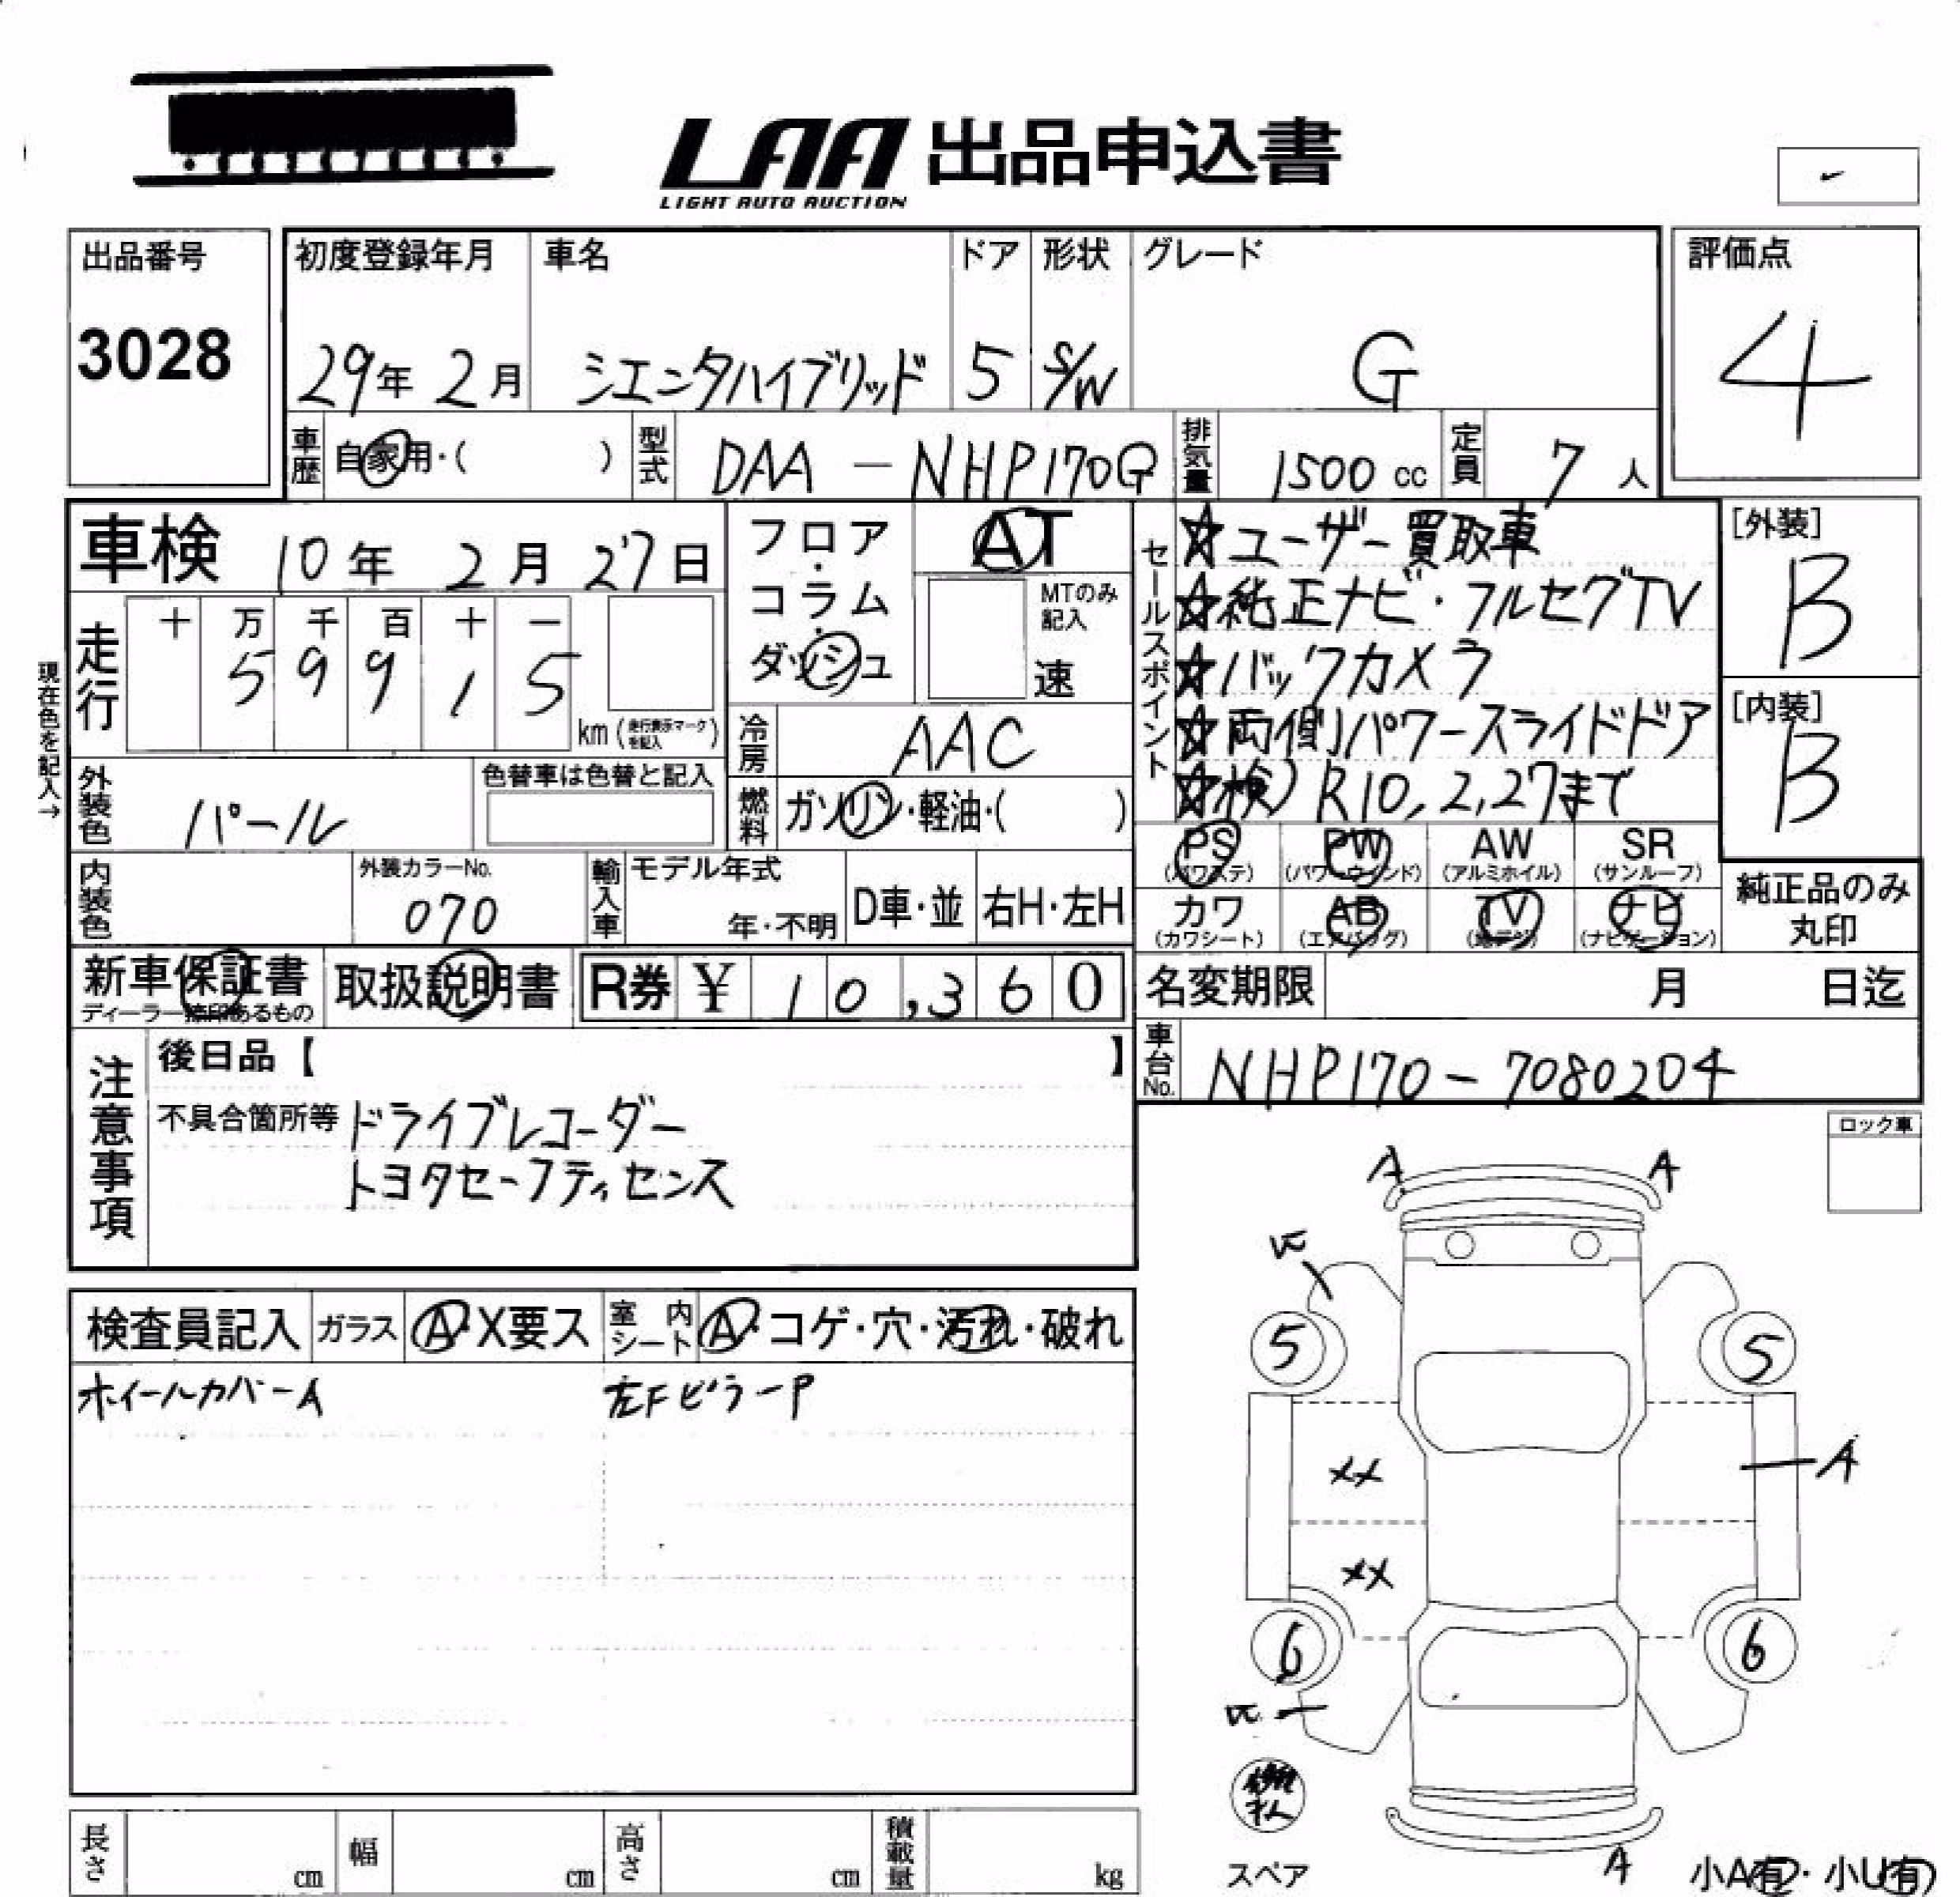 LAA 出品申込書
LIGHT AUTO AUCTION
出品番号
3028
初度登録年月 車名 ドア 形状 グレード
29年 2月 シエンタハイブリッド 5 S/W G
評価点
4
車歴 自家用・( ) 型式 DAA - NHP170G 排気量 1500 cc 定員 7 人
車検 10年 2月 27日
フロア・コラム・ダッシュ
AT
MTのみ記入
速
走行
十 万 千 百 十 一
5 9 9 1 5
km (走行表示マークを記入)
現在色を記入→
セールスポイント
☆ユーザー買取車
☆純正ナビ・フルセグTV
☆バックカメラ
☆両側パワースライドドア
☆検)R10,2,27まで
[外装]
B
[内装]
B
冷房 AAC
燃料 ガソリン・軽油・( )
外装色 パール
色替車は色替と記入
内装色
外装カラーNo.
070
輸入車 モデル年式
年・不明
D車・並 右H・左H
PS (パワステ) PW (パワーウインド) AW (アルミホイル) SR (サンルーフ)
カワ (カワシート) AB (エアバッグ) TV (地デジ) ナビ (ナビゲーション)
純正品のみ
丸印
新車保証書
ディーラー捺印あるもの
取扱説明書
R券 ¥ 10,360
名変期限 月 日迄
車台No. NHP170-7080204
注意事項
後日品【 】
不具合箇所等 ドライブレコーダー
トヨタセーフティセンス
ロック車
検査員記入 ガラス A・X要ス 室内シート A・コゲ・穴・汚れ・破れ
ホイールカバーA 左FピラーP
A A
5 5
XX
A
XX
6 6
A
スペア
小A有・小U有
長さ cm 幅 cm 高さ cm 積載量 kg